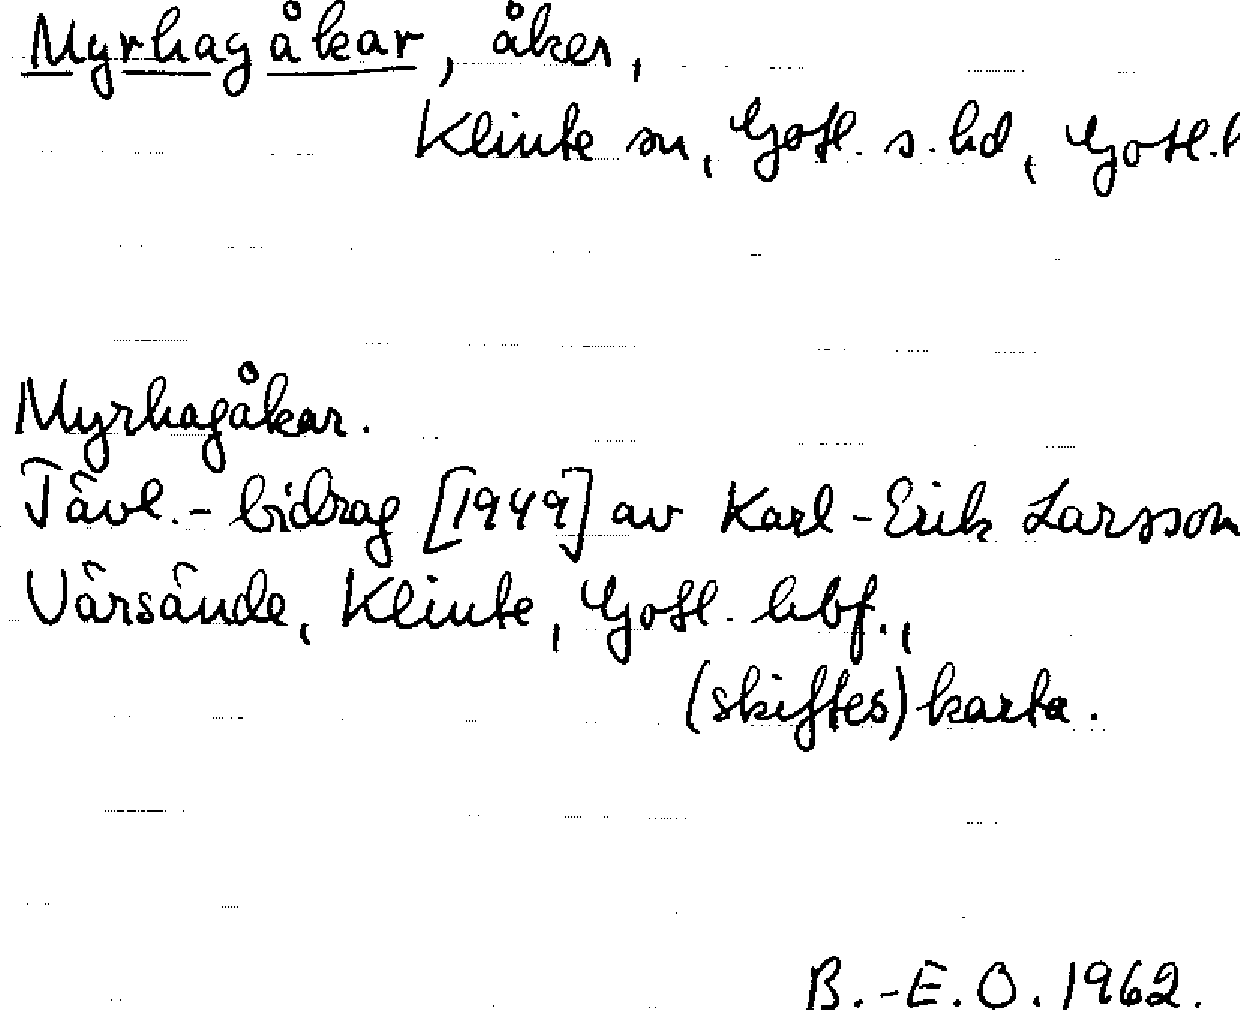 Myrhagåkar, åker,
Klinte sn, Gotl. s. hd, Gotl. l
Myrhagåkar.
Tävl.-bidrag [1949] av Karl-Erik Larsson
Värsände, Klinte, Gotl. hbf.,
(skiftes)karta.
B.-E.O. 1962.